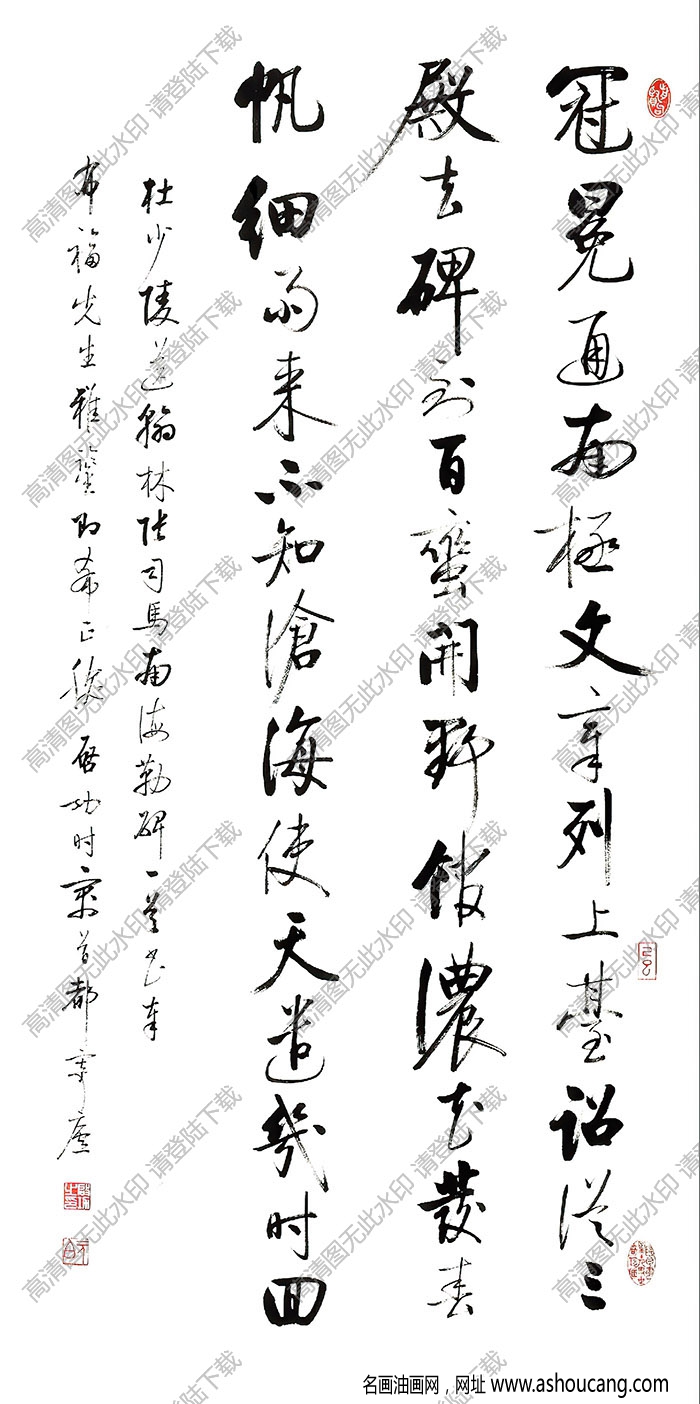 冠冕通南极文章列上臺詔従三
殿去碑到百蠻開野館濃花發春
帆細雨来不知滄海使天遣幾时回
杜少陵送翰林张司马南海勒碑一首书奉
布福先生雅鉴即希正腕启功时寓首都寄庐
高清图无此水印 请登陆下载
名画油画网，网址 www.ashoucang.com